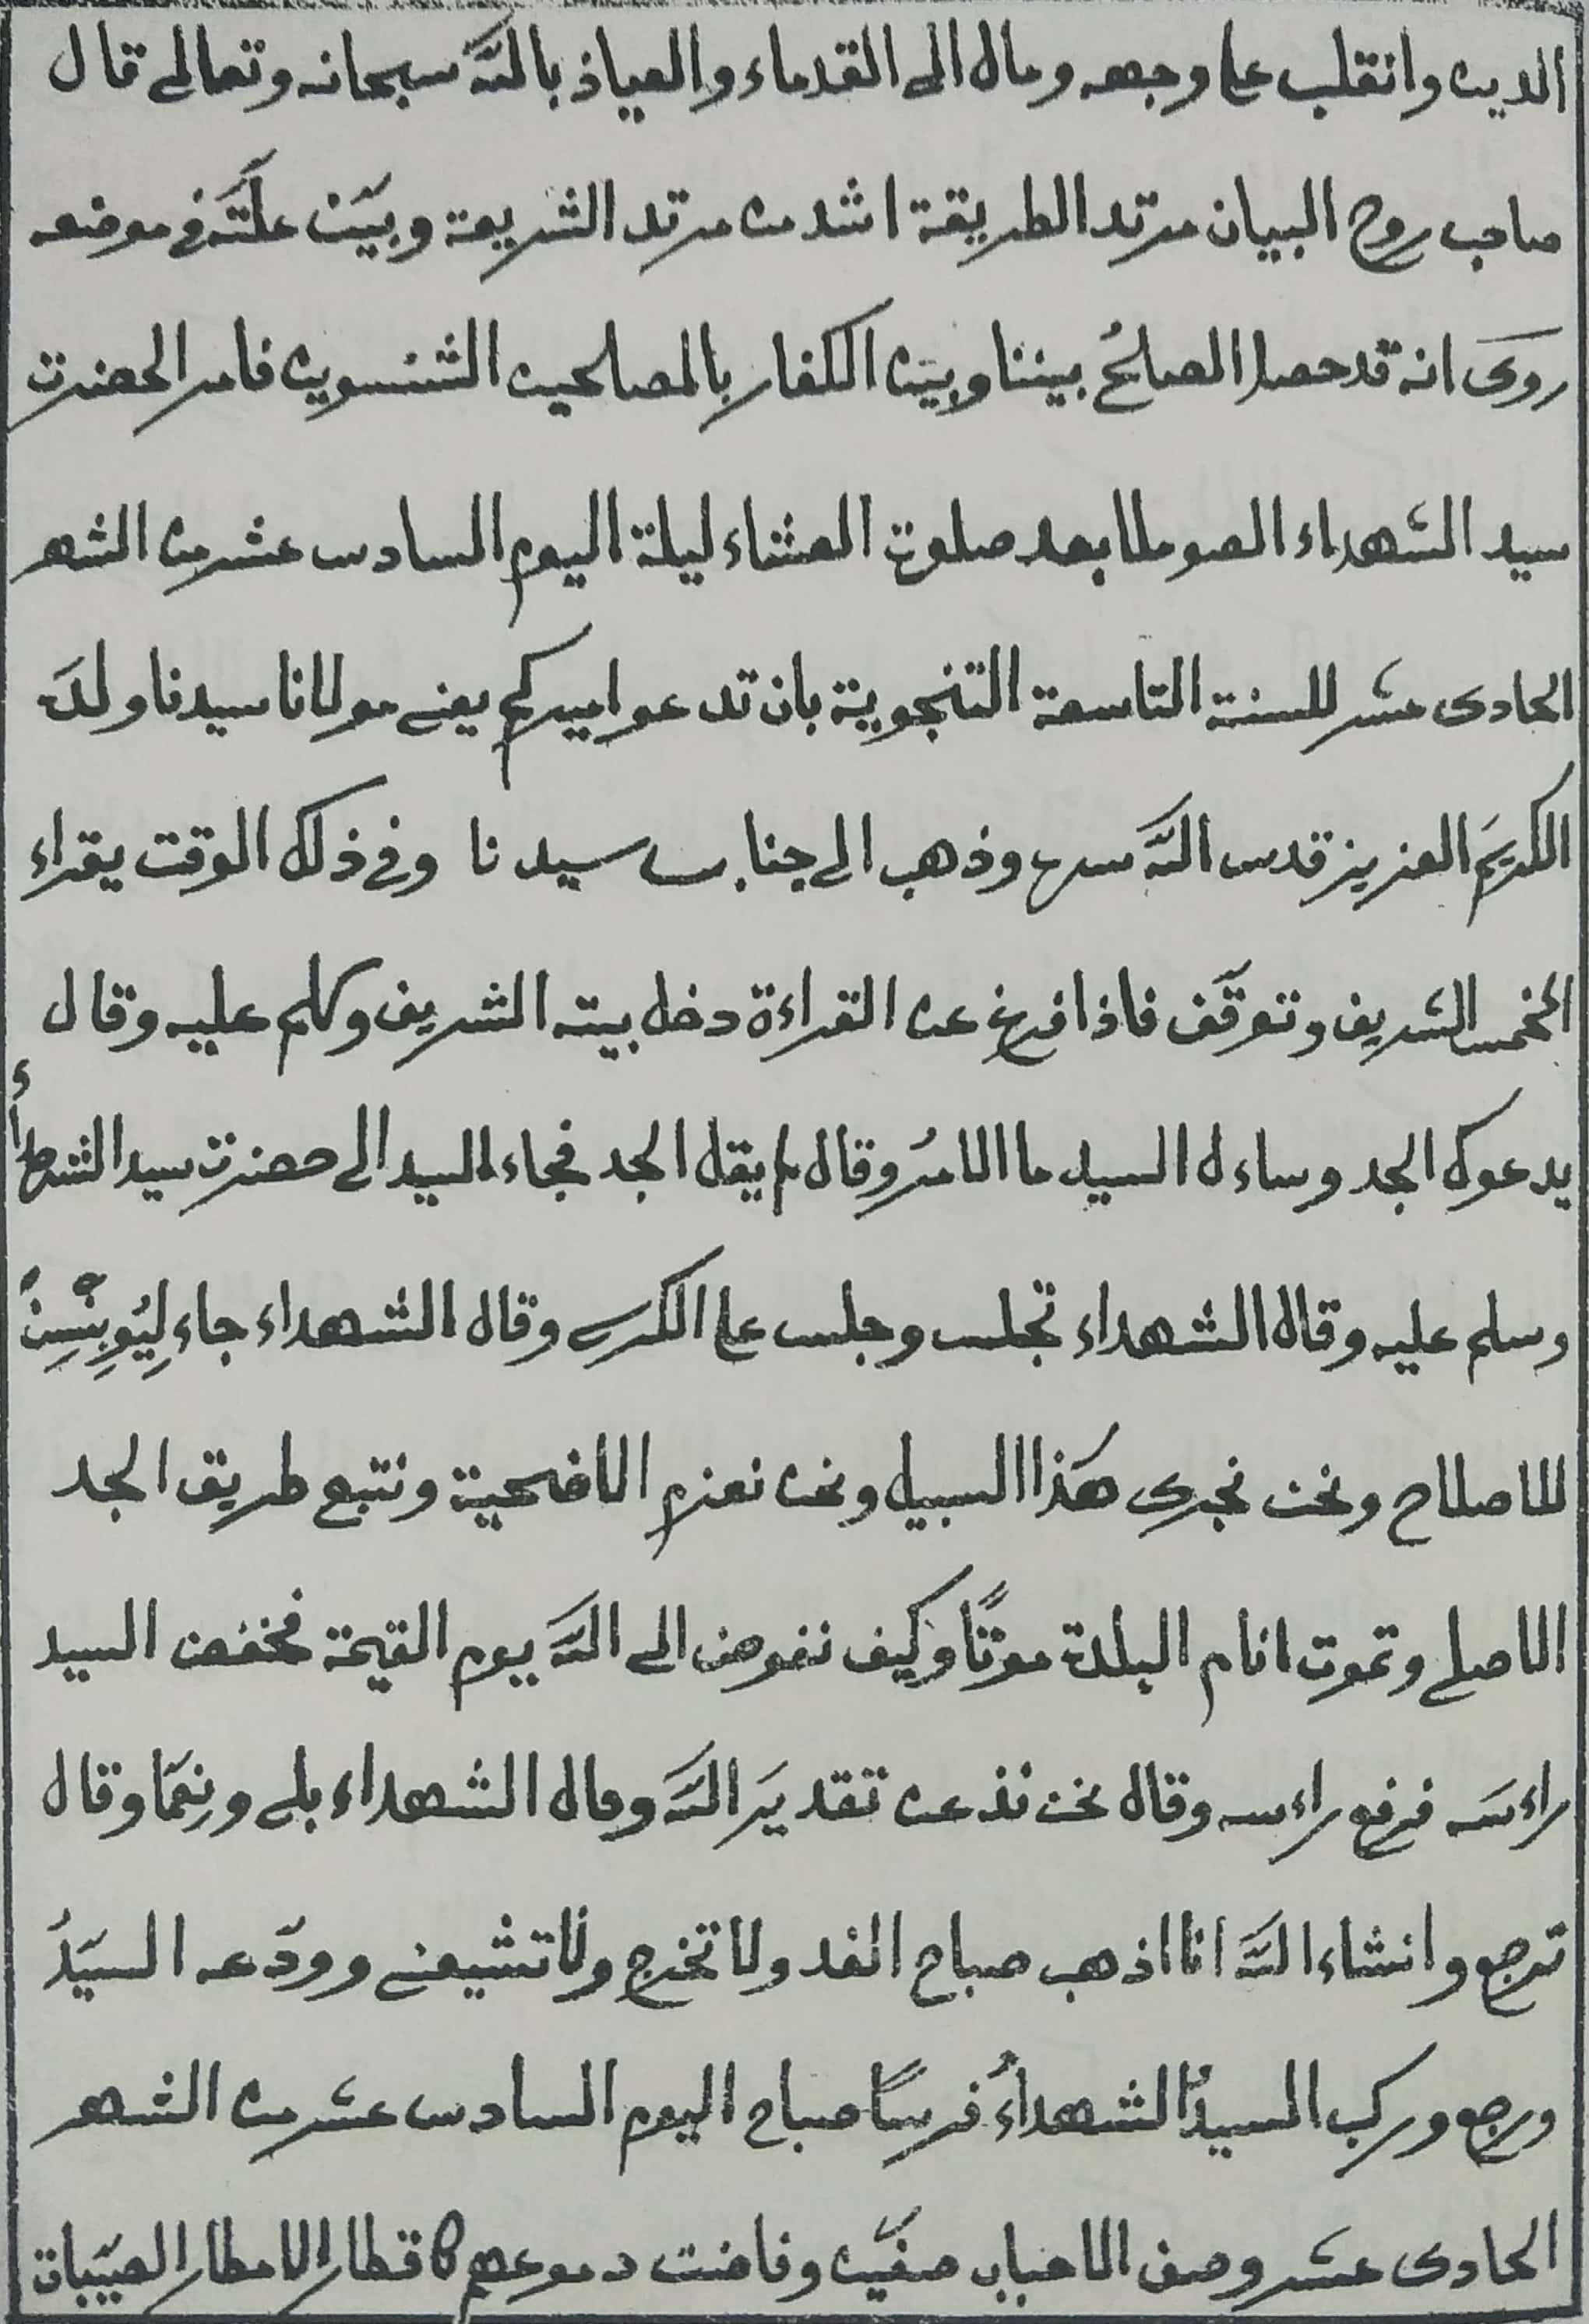 الدين وانقلب على وجهه ومال الى القدماء والعياذ باللّه سبحانه وتعالى قال
صاحب روح البيان مرتد الطريقة اشد من مرتد الشريعة وبيّن علّته فى موضعه
روى انه قد حصل الصلحُ بيننا وبين الكفار بالمصلحين الشنسوين فامر الحضرت
سيد الشهداء الصوملا بعد صلوت العشاء ليلة اليوم السادس عشر من الشهر
الحادى عشر للسنة التاسعة التنجوية بان تدعو اميركم يعنى مولانا سيدنا ولدَ
الكريمَ العزيز قدس اللّه سره وذهب الى جناب سيدنا وفى ذلك الوقت يقراء
الخمس الشريف وتوقّف فاذا فرغ عن القراءة دخل بيته الشريف وكلم عليه وقال
يدعوك الجد وساءل السيد ما الامرُ وقال لم يقل الجد فجاء السيد الى حضرت سيد الشهداء
وسلم عليه وقال الشهداء تجلس وجلس على الكرسى وقال الشهداء جاءِ لِيُوِنْسِنْ
للاصلاح ونحن نجرى هكذا السبيل ونحن نعزم الاضحية ونتبع طريق الجد
الاصلى وتموت انام البلدة موتًا وكيف نفوض الى اللّه يوم القيمة فخفض السيد
راءسَه فرفع راءسه وقال نحن نذعن تقديرَ اللّه وقال الشهداء بلى ونِعمّا وقال
ترجع وانشاء اللّه انا اذهب صباح الغد ولا تخرج ولا تشيعنى وودّعه السيّدُ
ورجع وركب السيدُ الشهداءُ فرسًا صباح اليوم السادس عشر من الشهر
الحادى عشر وصف الاحباب صفّين وفاضت دموعهم كاقطار الامطار الصيّبات